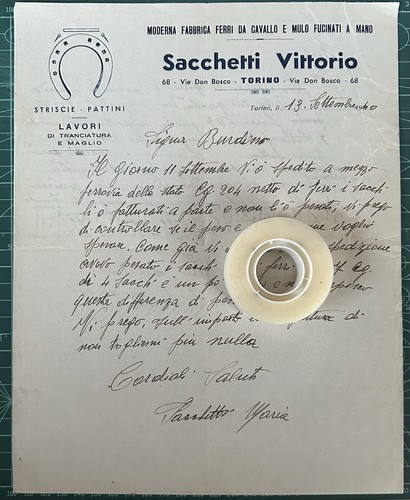 MODERNA FABBRICA FERRI DA CAVALLO E MULO FUCINATI A MANO
Sacchetti Vittorio
68 - Via Don Bosco - TORINO - Via Don Bosco - 68
STRISCIE - PATTINI
LAVORI
DI TRANCIATURA
E MAGLIO
Torino, li 13 Settembre
Signor Burdino
Il giorno 11 Settembre Vi ò spedito a mezzo
ferrovia dello stato Cg 304 netto di ferri i sacchi
li ò fatturati a parte e non li ò pesati, vi prego
di controllare se il peso e voglio
sperare. Come già vi spedizione
avevo pesato i sacchi ferri Cg.
di 4 sacchi e un po
questa differenza di
Vi prego, sull' importo di
non togliermi più nulla
Cordiali Saluti
Sacchetti Maria